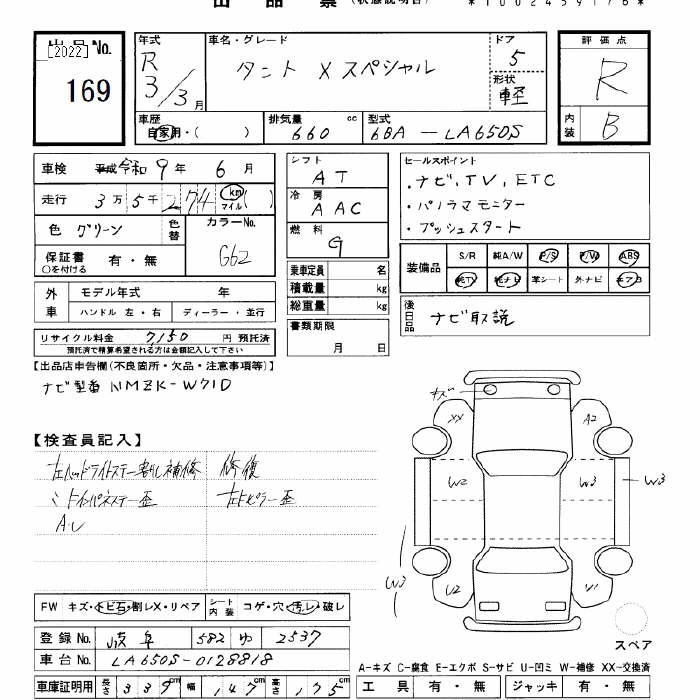 出品票 (状態説明書)
*1002459176*
出品No.
[2022]
169
年式
R 3/3月
車名・グレード
タント Xスペシャル
ドア
5
形状
軽
評価点
R
内装
B
車歴
自家用・( )
排気量
660 cc
型式
6BA-LA650S
車検 平成 令和 9年 6月
走行 3万5千274 km マイル ( )
色 グリーン
色替
カラーNo.
G62
保証書
○を付ける
有・無
シフト
AT
冷房
AAC
燃料
G
乗車定員 名
積載量 kg
総重量 kg
書類期限
月 日
セールスポイント
・ナビ,TV,ETC
・パノラマモニター
・プッシュスタート
装備品
S/R 純A/W P/S P/W ABS
純TV 純ナビ 革シート 外ナビ エアB
後日品
ナビ取説
外車
モデル年式 年
ハンドル 左・右 ディーラー・並行
リサイクル料金 7150 円 預託済
預託済で精算希望される方は金額記入して下さい
【出品店申告欄(不良箇所・欠品・注意事項等)】
ナビ型番 NMZK-W71D
【検査員記入】
左ヘッドライトステー割れ補修
〃 トインパネステー歪
A・U
修復
左Fピラー歪
キズ
XX
A2
W2
W3
W3
W3
U2
V1
スペア
FW キズ・トビ石・割レX・リペア
シート内装 コゲ・穴・汚レ・破レ
登録No. 岐阜 582 ゆ 2537
車台No. LA650S-0128818
車庫証明用 長さ 339cm 幅 147cm 高さ 175cm
A-キズ C-腐食 E-エクボ S-サビ U-凹ミ W-補修 XX-交換済
工具 有・無 ジャッキ 有・無